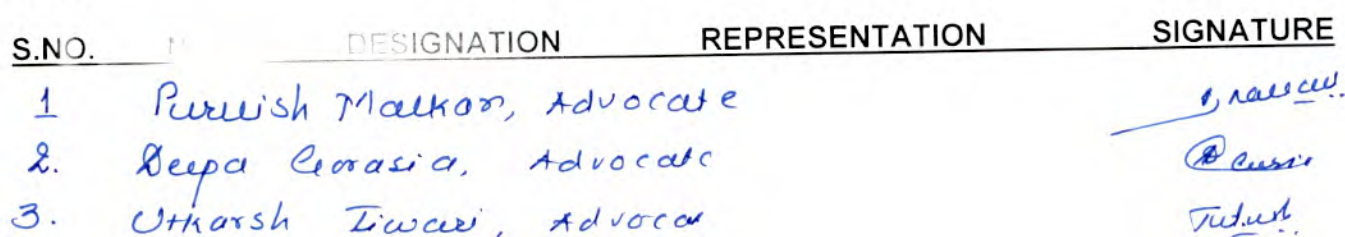 S.NO. DESIGNATION REPRESENTATION SIGNATURE
1 Purvish Malkan, Advocate
2. Deepa Gorasia, Advocate
3. Utkarsh Tiwari, Advoca